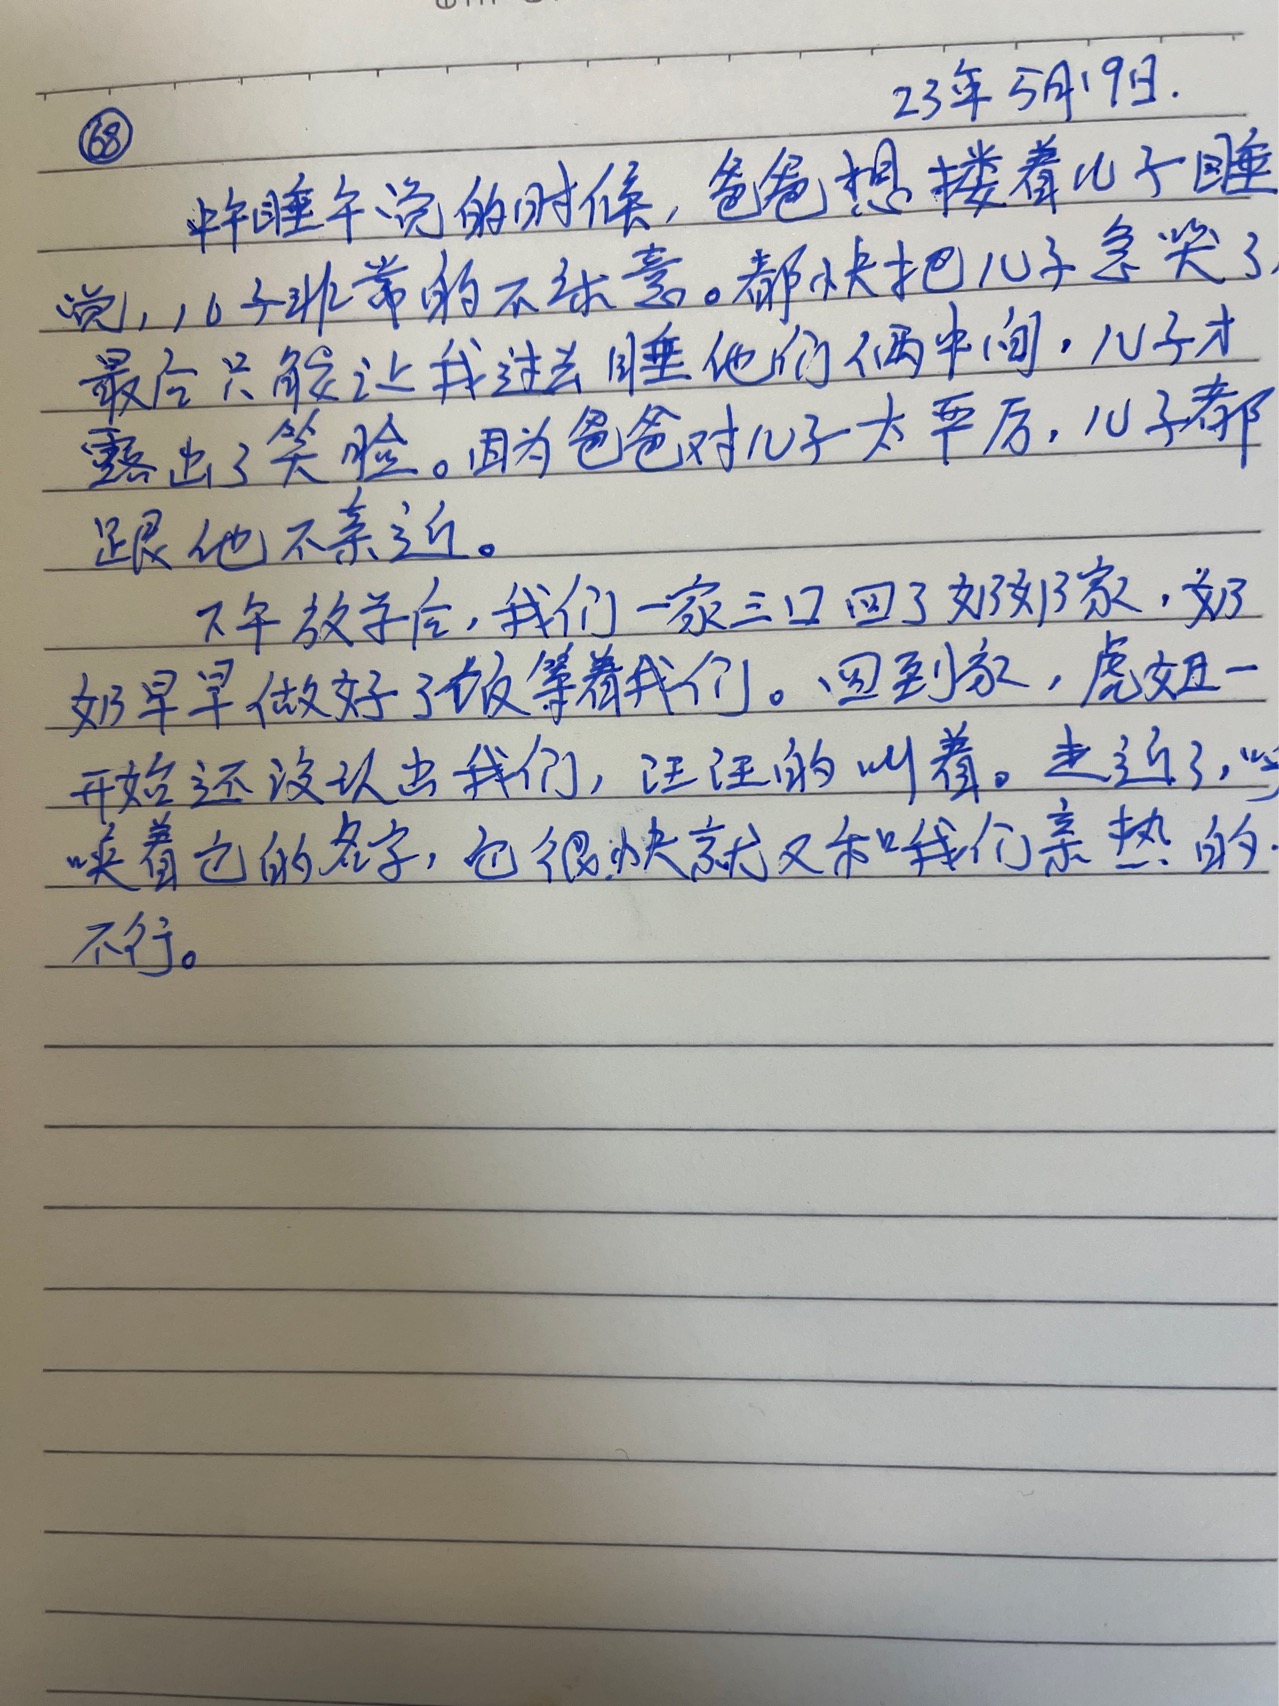 23年5月19日.
68
中午睡午觉的时候，爸爸想搂着儿子睡
觉，儿子非常的不乐意。都快把儿子急哭了，
最后只能让我过去睡他们俩中间，儿子才
露出了笑脸。因为爸爸对儿子太严厉，儿子都
跟他不亲近。
下午放学后，我们一家三口回了奶奶家，奶
奶早早做好了饭等着我们。回到家，虎妞一
开始还没认出我们，汪汪的叫着。走近了，呼
唤着它的名字，它很快就又和我们亲热的
不行。